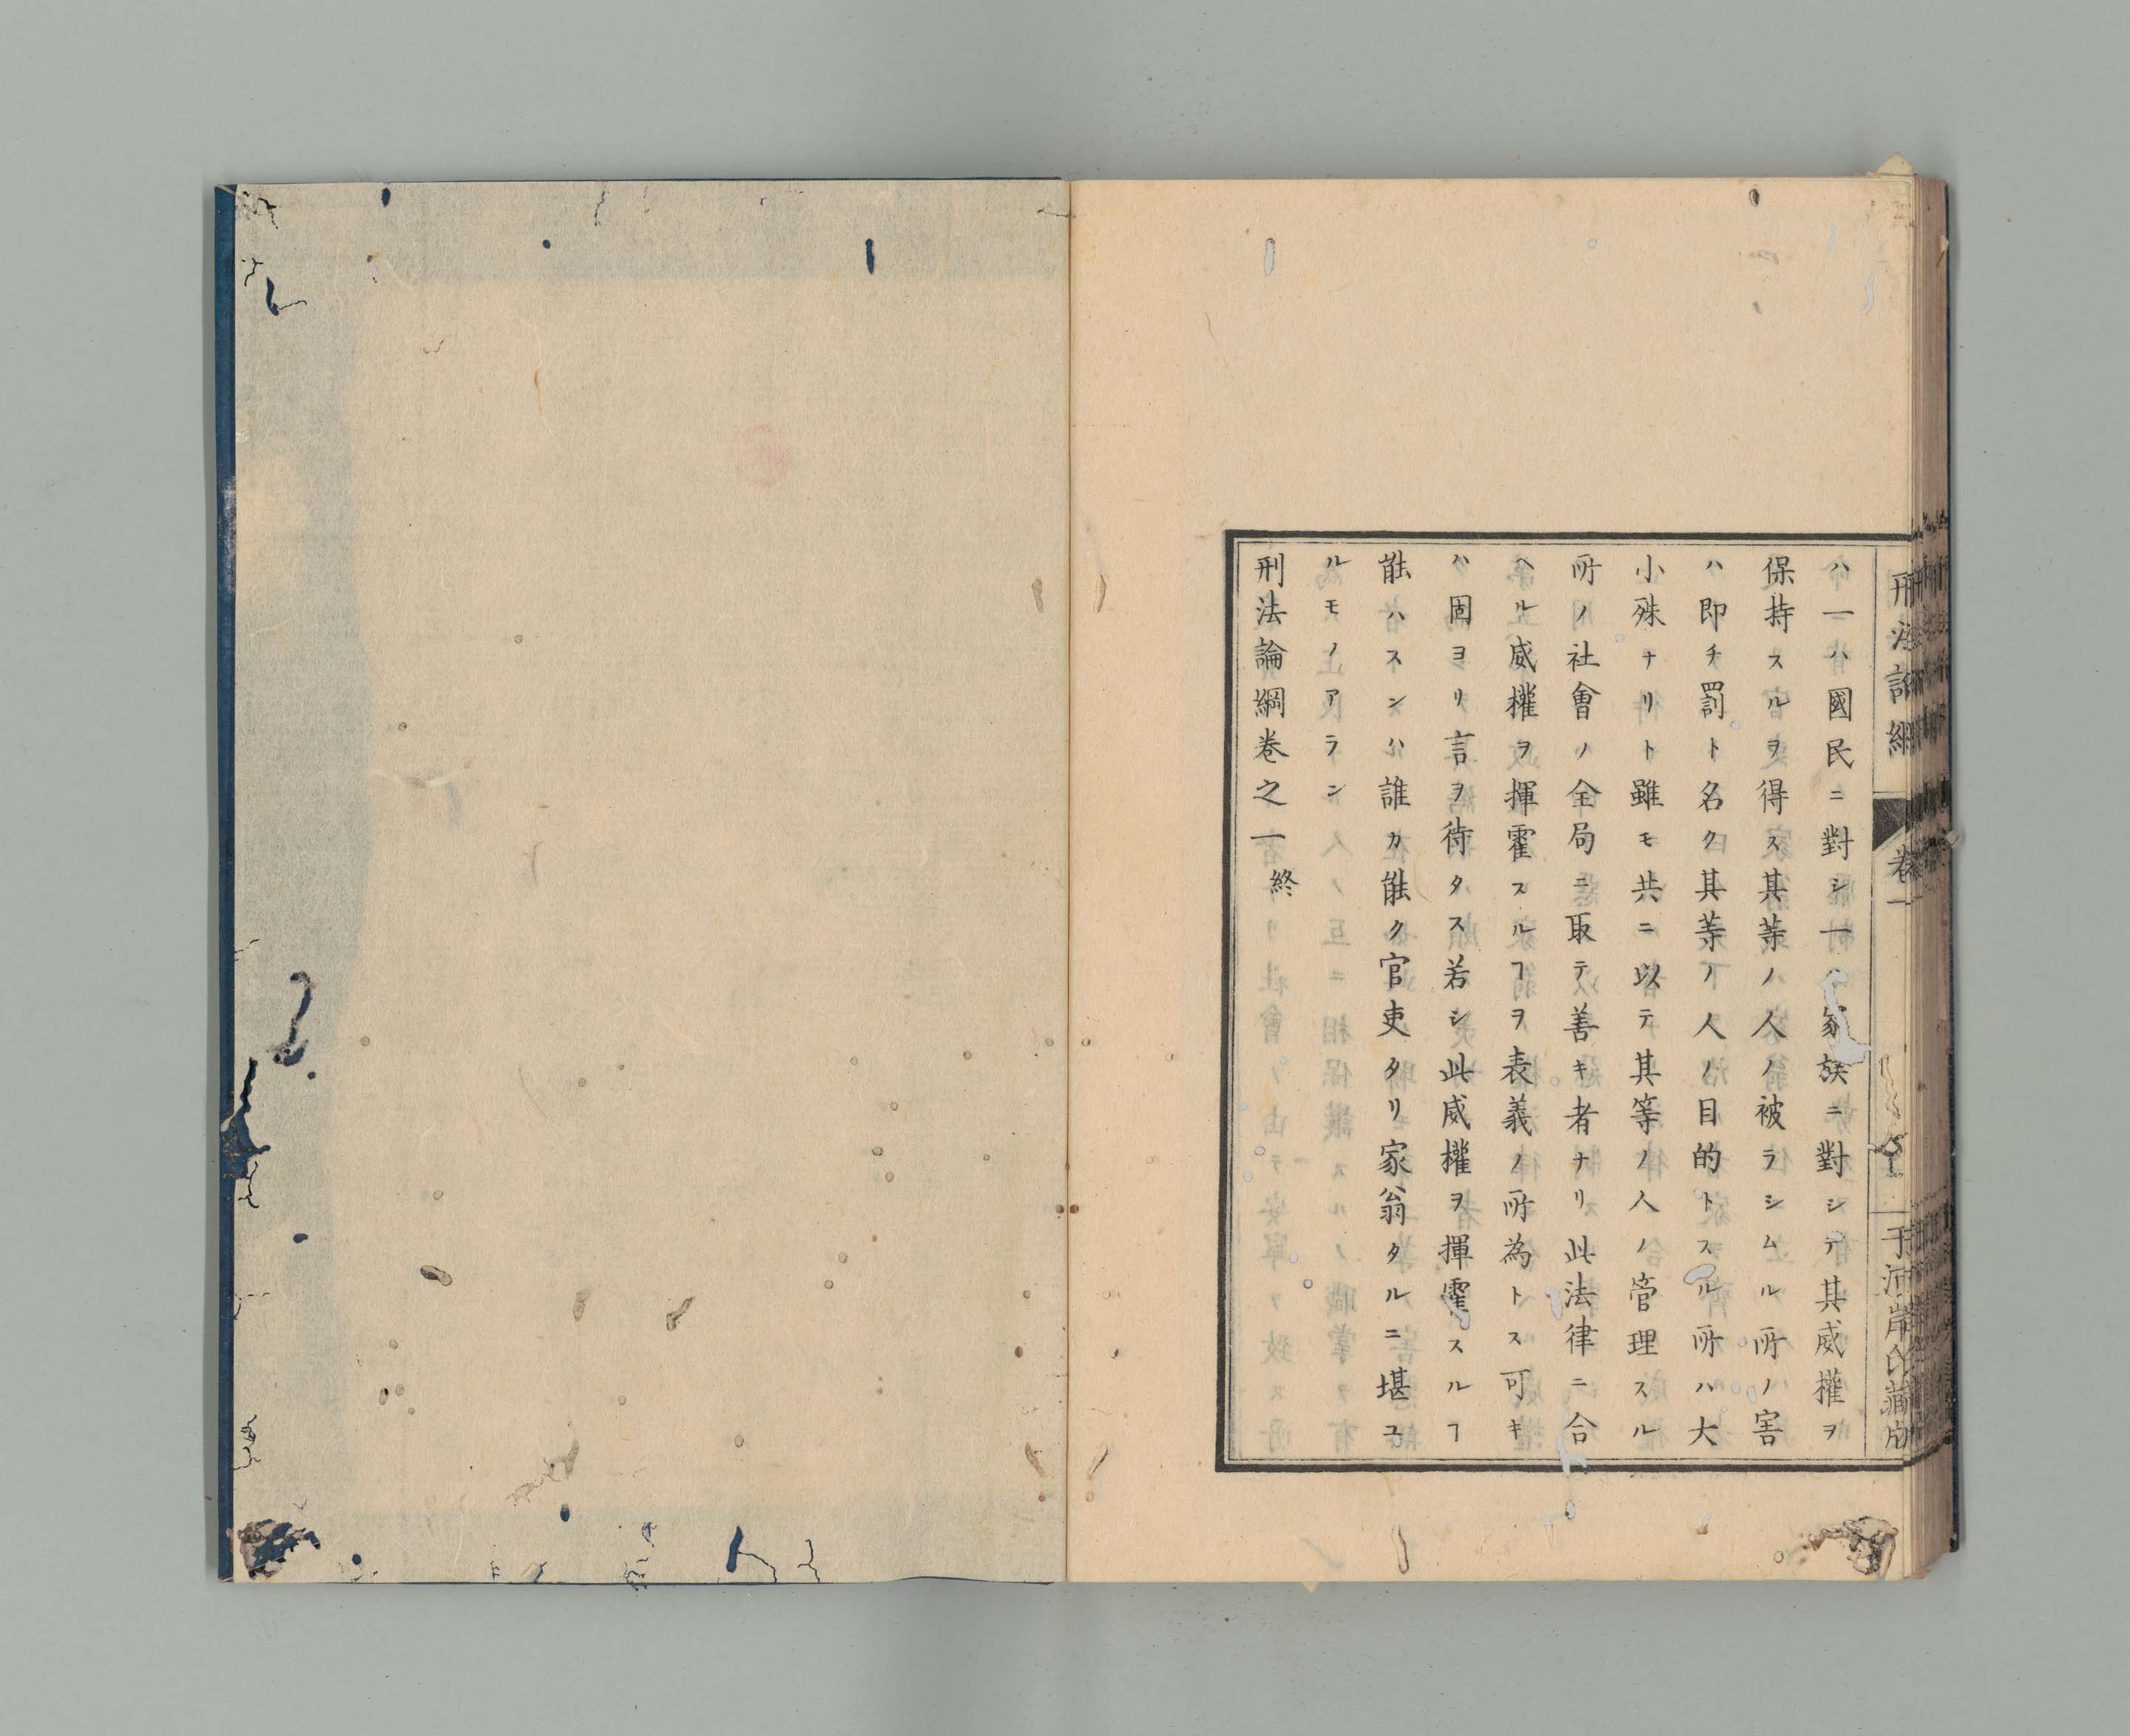 ハ一ハ國民ニ對シ一ハ家族ニ對シテ其威權ヲ
保持スルヲ得ス其䓁ノ人ノ被ラシムル所ノ害
ハ即チ罰ト名ク其䓁ノ人ノ目的トスル所ハ大
小殊ナリト雖モ共ニ以テ其等ノ人ノ管理スル
所ノ社會ノ全局ニ取テ善キ者ナリ此法律ニ合
ヘル威權ヲ揮霍スルヿヲ表義ノ所為トス可キ
ハ固ヨリ言ヲ待タス若シ此威權ヲ揮霍スルヿ
能ハスンハ誰カ能ク官吏タリ家翁タルニ堪ユ
ルモノアラン
刑法論綱卷之一終